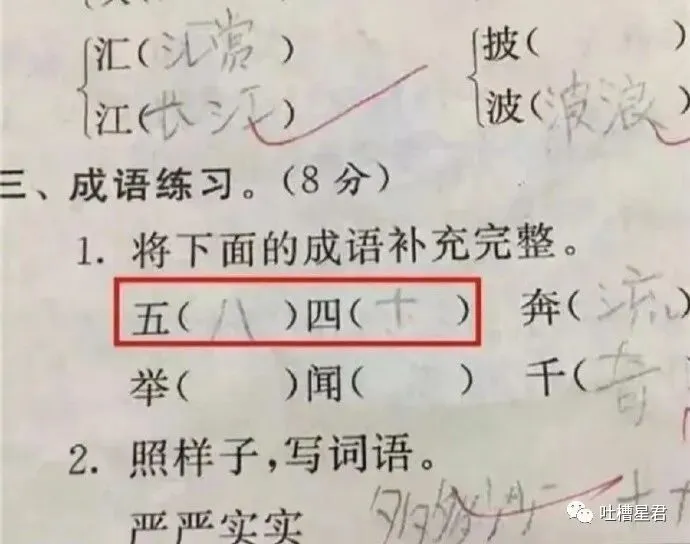 汇(汇赏) 披( )
江(长江) 波(波浪)
三、成语练习。(8分)
1. 将下面的成语补充完整。
五(八)四(十) 奔(流
举( )闻( ) 千(奇
2. 照样子,写词语。
严严实实
吐槽星君